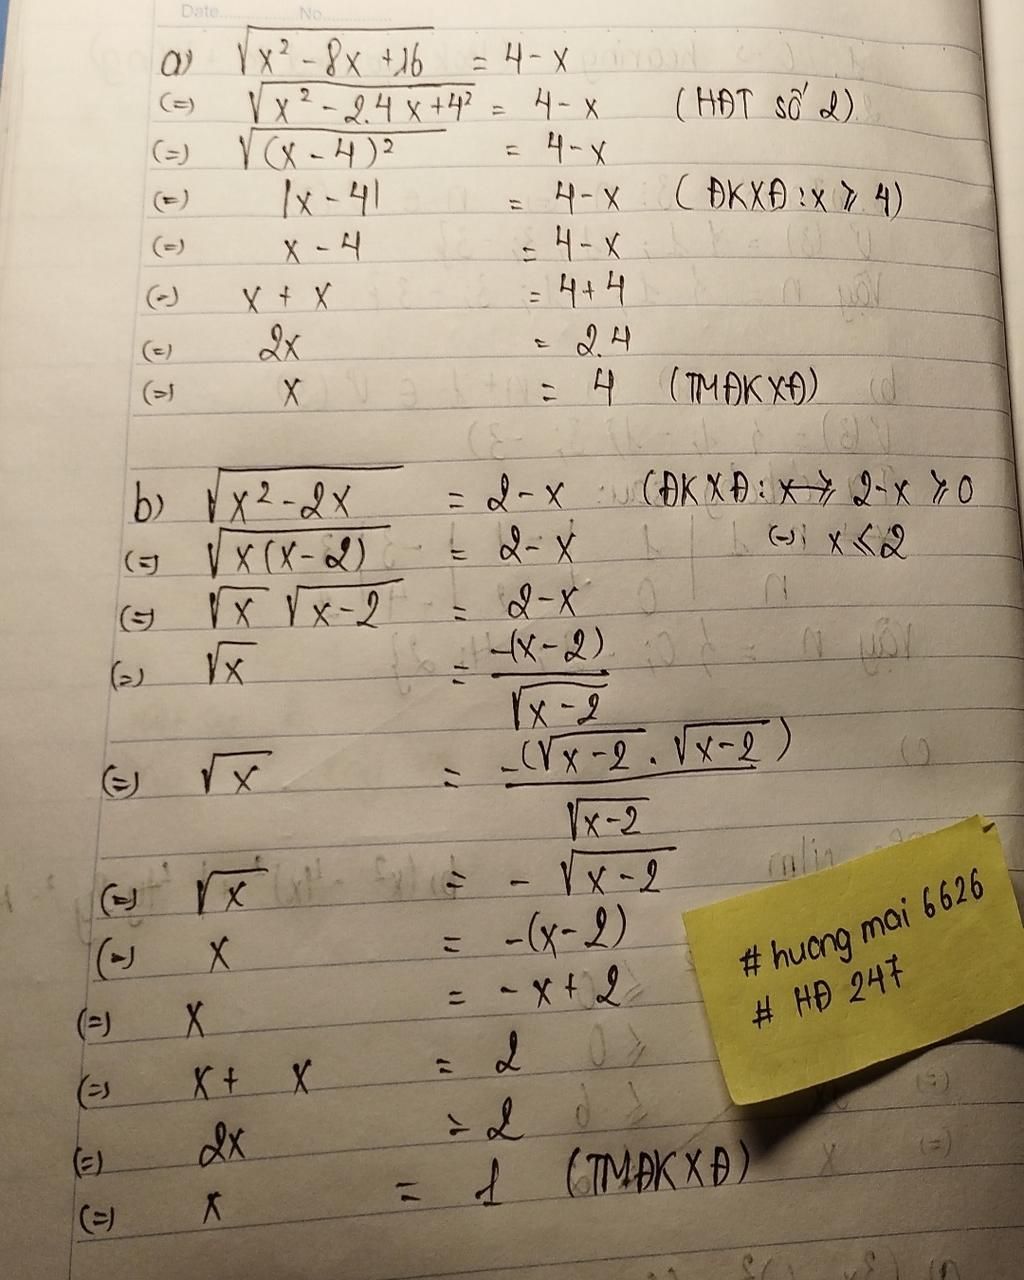 Date............No............
a) √(x² - 8x + 16) = 4 - x
(=) √(x² - 2.4x + 4²) = 4 - x (HĐT số 2)
(=) √((x - 4)²) = 4 - x
(=) |x - 4| = 4 - x (ĐKXĐ: x ⩾ 4)
(=) x - 4 = 4 - x
(=) x + x = 4 + 4
(=) 2x = 2.4
(=) x = 4 (TMĐKXĐ)
b) √(x² - 2x) = 2 - x (ĐKXĐ: 2 - x ⩾ 0
(=) √(x(x - 2)) = 2 - x (=) x ⩽ 2
(=) √x √(x - 2) = 2 - x
(=) √x = -(x - 2) / √(x - 2)
(=) √x = -(√(x - 2) . √(x - 2)) / √(x - 2)
(=) √x = - √(x - 2)
(=) x = -(x - 2)
(=) x = - x + 2
(=) x + x = 2
(=) 2x = 2
(=) x = 1 (TMĐKXĐ)
# huong mai 6626
# HĐ 247